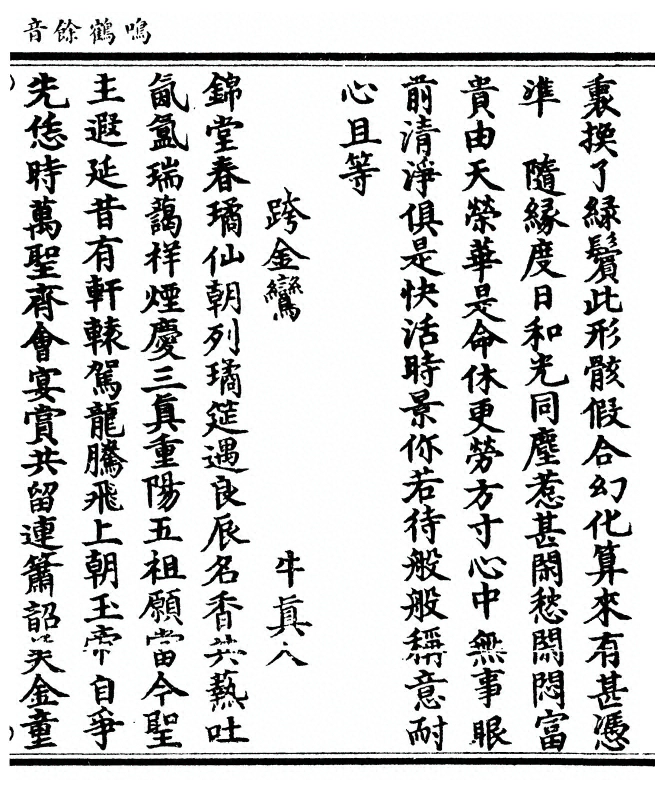 鳴鶴餘音
裏換了綠鬢此形骸假合幻化算來有甚憑
準　隨緣度日和光同塵惹甚閑愁閑悶富
貴由天榮華是命休更勞方寸心中無事眼
前清淨俱是快活時景你若待般般稱意耐
心且等
跨金鸞　牛真人
錦堂春璚仙朝列璚筵遇良辰名香共爇吐
氤氳瑞藹祥煙慶三真重陽五祖願當今聖
主遐延昔有軒轅駕龍騰飛上朝玉帝自爭
先恁時萬聖齊會宴賞共留連簫韶美金童